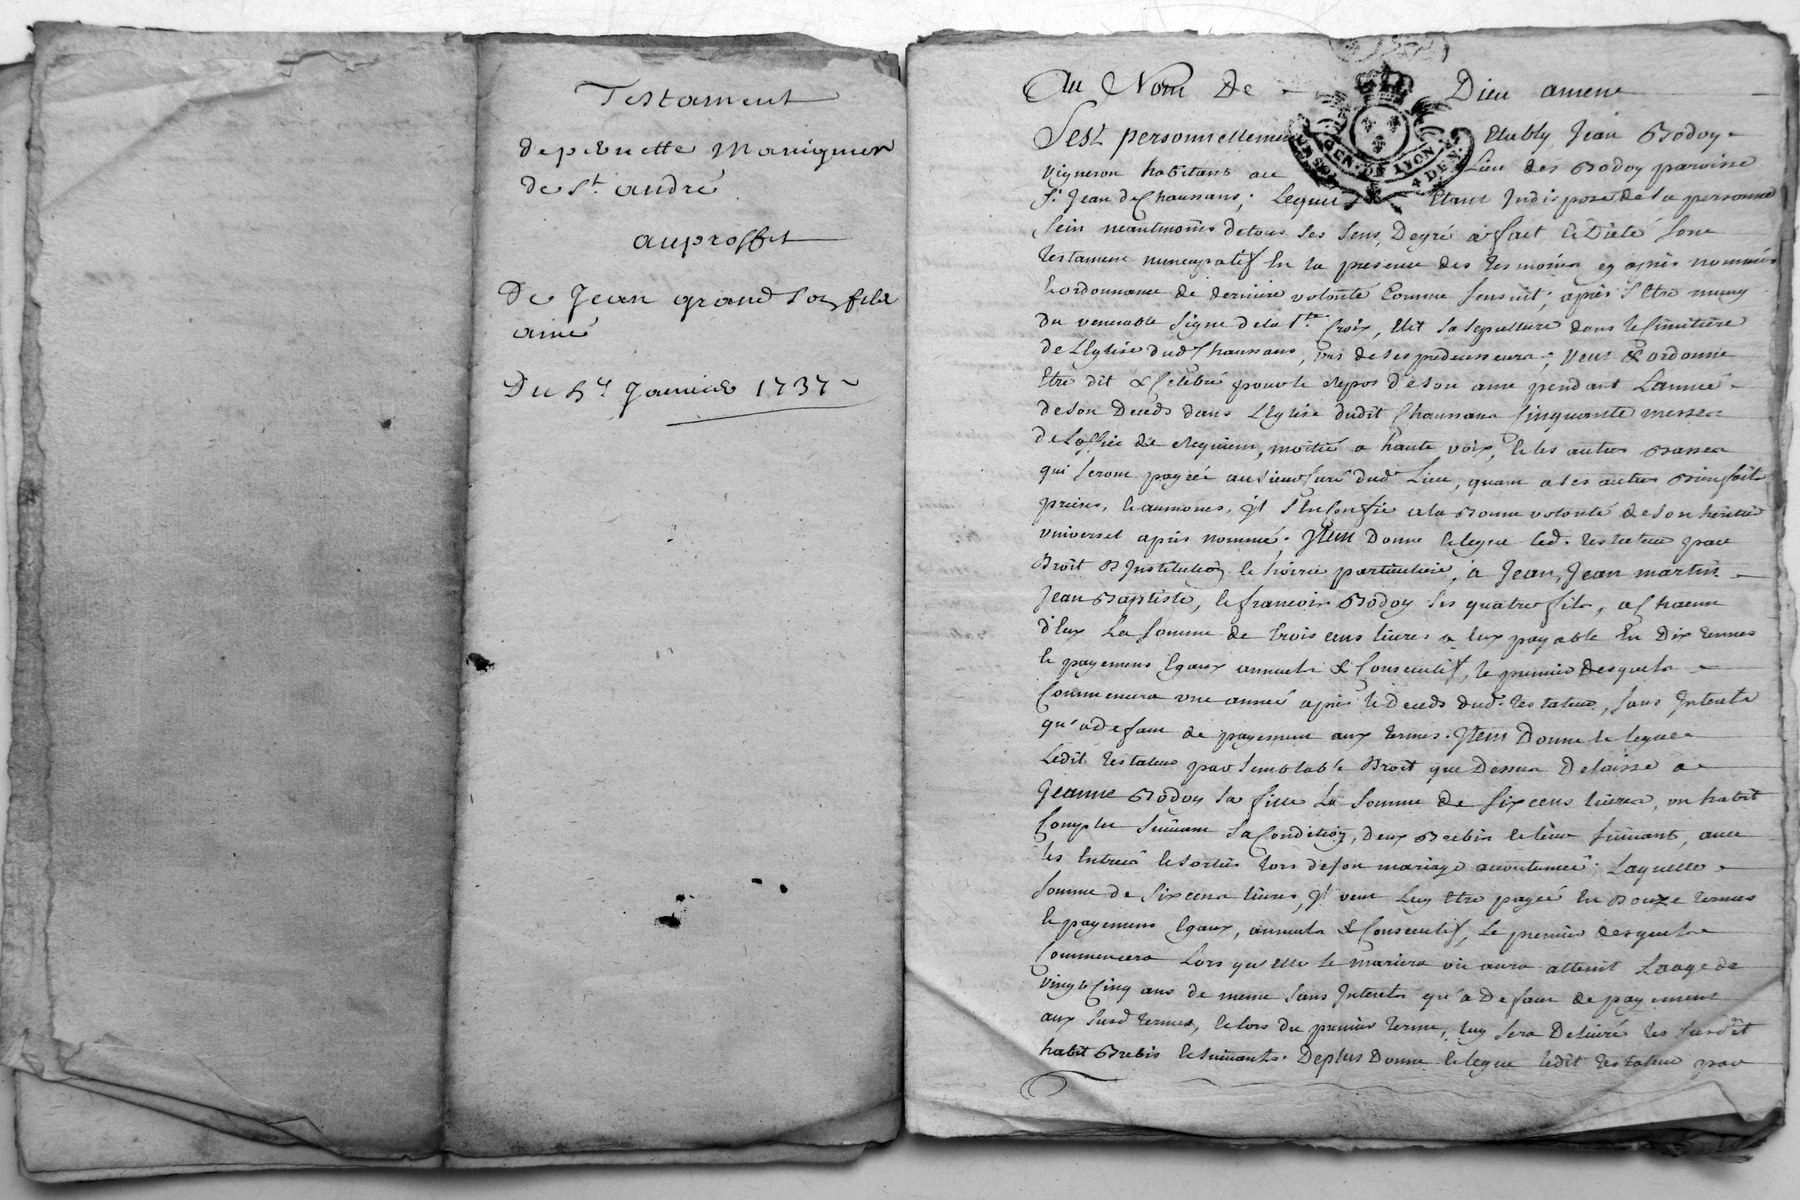 Testament
de pernette Marignier
de St. andré
au proffit
De Jean grand son fils
ainé
Du Janvier 1737
Au Nom De Dieu amen
Sest personnellement Etably Jean Bodoy
vigneron habitant au Lieu des Bodoy paroisse
St. Jean de Chaussans, Lequel Etant Indisposé de sa personne
sein neantmoins de tous ses sens, De gré a fait & Dicté son
testament nuncupatif En la presence des tesmoins cy après nommés
& ordonnance de derniere volonté Comme sensuit; après s'Etre muny
du venerable signe de la Ste. Croix, Elit sa sepulture dans le Cimitiere
de LEglise dud Chaussans, de ses predecesseurs; veut & ordonne
Etre dit & Celebré pour le repos de son ame pendant Lannée
de son Deceds dans LEglise dudit Chaussans Cinquante messes
de Loffice de requiem, moitié a haute voix, & les autres Basses
qui seront payéé au sieur Curé dud Lieu, quant a ses autres Bienfaits
prieres, & aumones, Jl s'En Confie a la Bonne volonté de son heritier
universel après nommé. Jtem Donne & legue led. testateur par
Droit D'Jnstitution & hoirie particuliere, a Jean, Jean martin
Jean Baptiste, & francois Bodoy ses quatre fils, a Chacun
d'Eux La somme de trois cens livres a Eux payable En Dix termes
& payemens Egaux annuels & Consecutifs, le premier desquels
Commencera une année après le Deceds dud. testateur, sans Jnterets
qu'a Defaut de payement aux termes. Jtem Donne & legue
Ledit testateur par semblable Droit que Dessus Delaissé a
Jeanne Bodoy sa fille La somme de six cens livres, un habit
Complet suivant sa Condition, Deux Brebis & leur suivants, avec
les Entrées & sorties lors de son mariage acoutumée; Laquelle
somme de six cens livres, Jl veut Luy Etre payée En Douze termes
& payemens Egaux, annuels & Consecutifs, Le premier desquels
Commencera Lors qu'elle se mariera ou aura atteint Laage de
vingt Cinq ans de meme sans Jnterets qu'a Defaut de payement
aux susd termes, & lors du premier terme, luy sera Delivré les susdit
habit Brebis & suivants. De plus Donne & legue ledit testateur par
GEN. DE LYON
4 DEN.